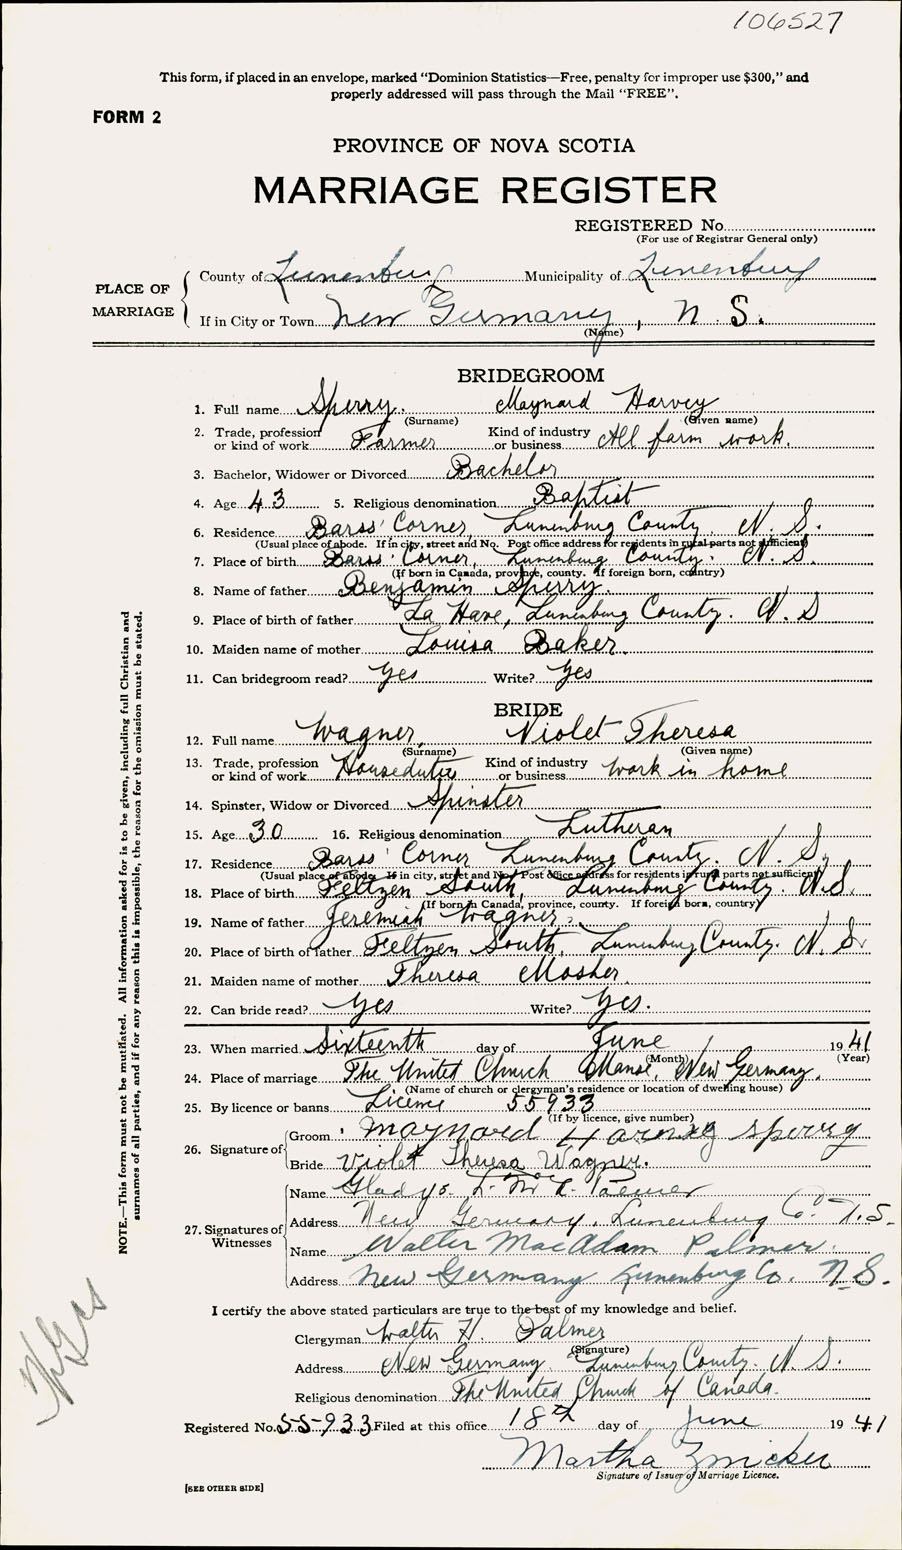 106527
This form, if placed in an envelope, marked “Dominion Statistics—Free, penalty for improper use $300,” and
properly addressed will pass through the Mail “FREE”.
FORM 2
PROVINCE OF NOVA SCOTIA
MARRIAGE REGISTER
REGISTERED No.
(For use of Registrar General only)
PLACE OF MARRIAGE
County of Lunenburg Municipality of Lunenburg
If in City or Town New Germany, N. S.
(Name)
BRIDEGROOM
1. Full name Sperry. Maynard Harvey
(Surname) (Given name)
2. Trade, profession or kind of work Farmer Kind of industry or business All farm work.
3. Bachelor, Widower or Divorced Bachelor
4. Age 43 5. Religious denomination Baptist
6. Residence Barss' Corner Lunenburg County, N. S.
(Usual place of abode. If in city, street and No. Post office address for residents in rural parts not sufficient)
7. Place of birth Barss' Corner, Lunenburg County. N. S.
(If born in Canada, province, county. If foreign born, country)
8. Name of father Benjamin Sperry.
9. Place of birth of father La Have, Lunenburg County. N. S
10. Maiden name of mother Louisa Baker.
11. Can bridegroom read? Yes Write? Yes
BRIDE
12. Full name Wagner, Violet Theresa
(Surname) (Given name)
13. Trade, profession or kind of work Houseduties Kind of industry or business Work in home
14. Spinster, Widow or Divorced Spinster
15. Age 30 16. Religious denomination Lutheran
17. Residence Barss' Corner Lunenburg County. N. S.
(Usual place of abode. If in city, street and No. Post office address for residents in rural parts not sufficient)
18. Place of birth Feltzen South, Lunenburg County N.S.
(If born in Canada, province, county. If foreign born, country)
19. Name of father Jeremiah Wagner.
20. Place of birth of father Feltzen South, Lunenburg County. N. S.
21. Maiden name of mother Theresa Mosher
22. Can bride read? Yes Write? Yes.
23. When married Sixteenth day of June 1941
(Month) (Year)
24. Place of marriage The United Church Manse, New Germany.
(Name of church or clergyman's residence or location of dwelling house)
25. By licence or banns Licence 55933
(If by licence, give number)
26. Signature of
Groom Maynard Harvey Sperry
Bride Violet Theresa Wagner.
27. Signatures of Witnesses
Name Gladys. L. Palmer
Address New Germany, Lunenburg Co. N.S.
Name Walter MacAdam Palmer.
Address New Germany Lunenburg Co. N.S.
I certify the above stated particulars are true to the best of my knowledge and belief.
Clergyman Walter H. Palmer
(Signature)
Address New Germany. Lunenburg County. N. S.
Religious denomination The United Church of Canada.
Registered No. 55933 Filed at this office 18th day of June 1941
Martha Zwicker
Signature of Issuer of Marriage Licence.
[SEE OTHER SIDE]
NOTE.—This form must not be mutilated. All information asked for is to be given, including full Christian and
surnames of all parties, and if for any reason this is impossible, the reason for the omission must be stated.